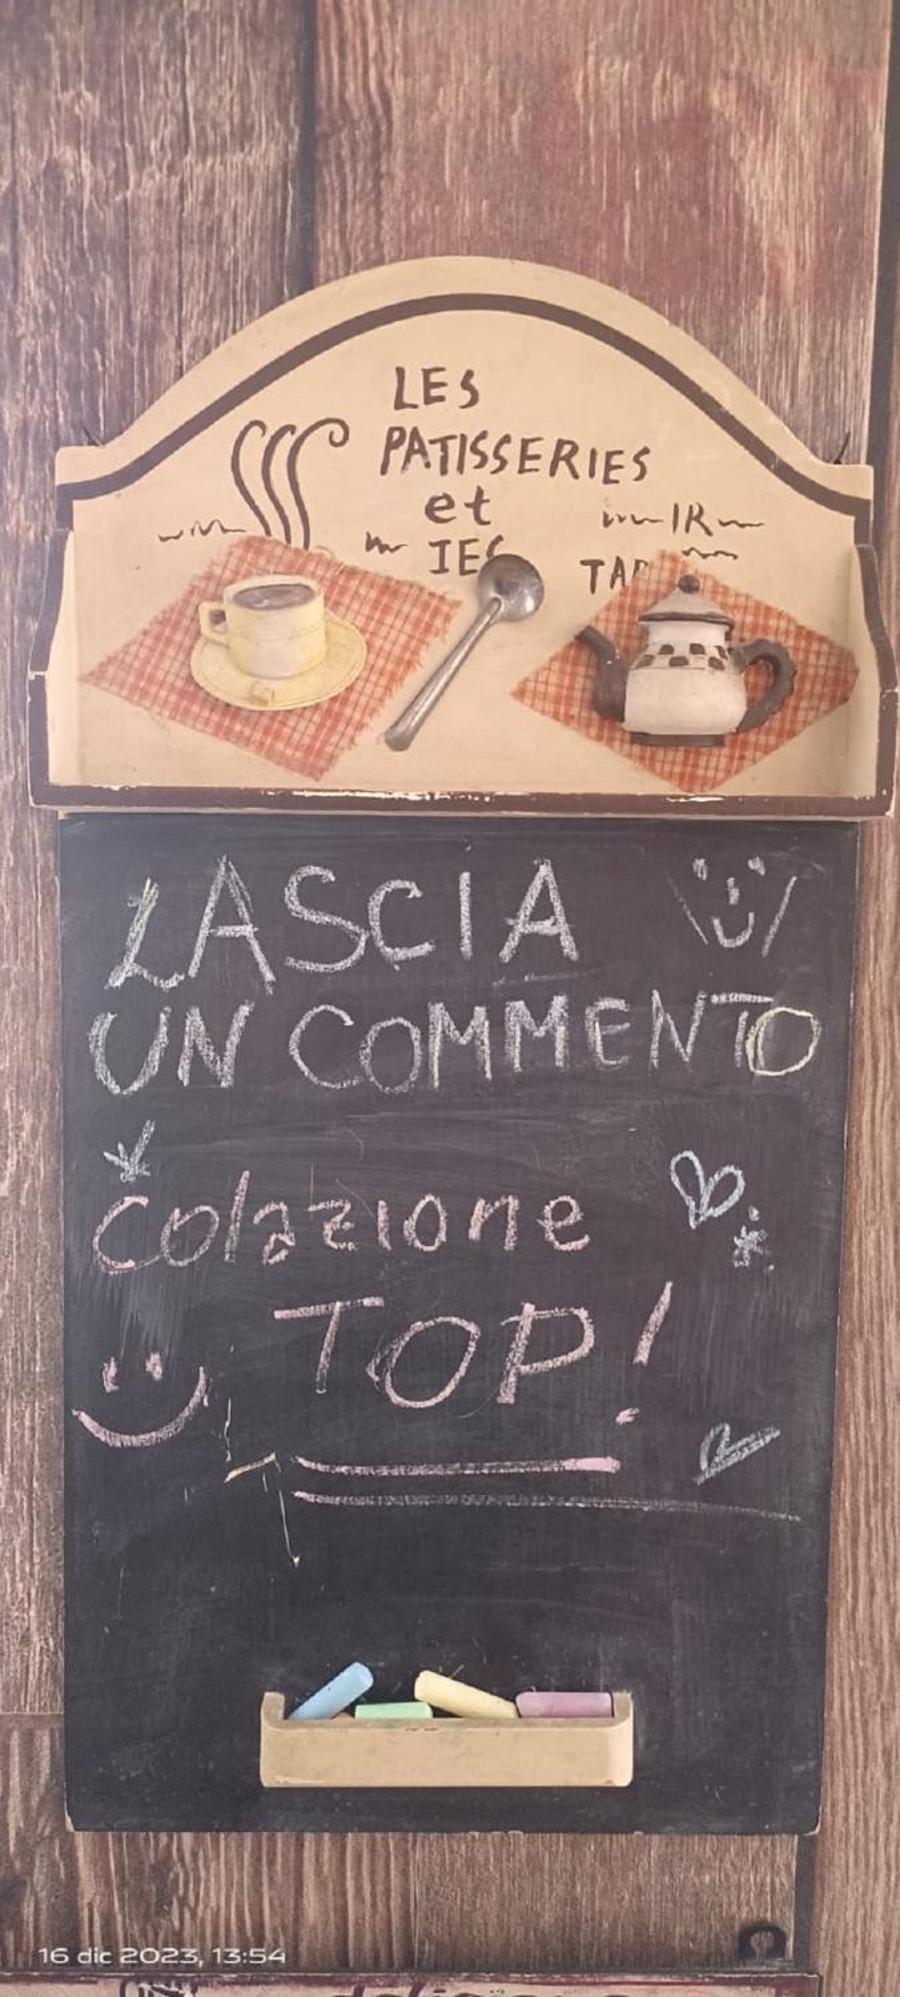 LES
PATISSERIES
et
IR
IES
TAR
LASCIA
UN COMMENTO
colazione
TOP!
16 dic 2023, 13:54